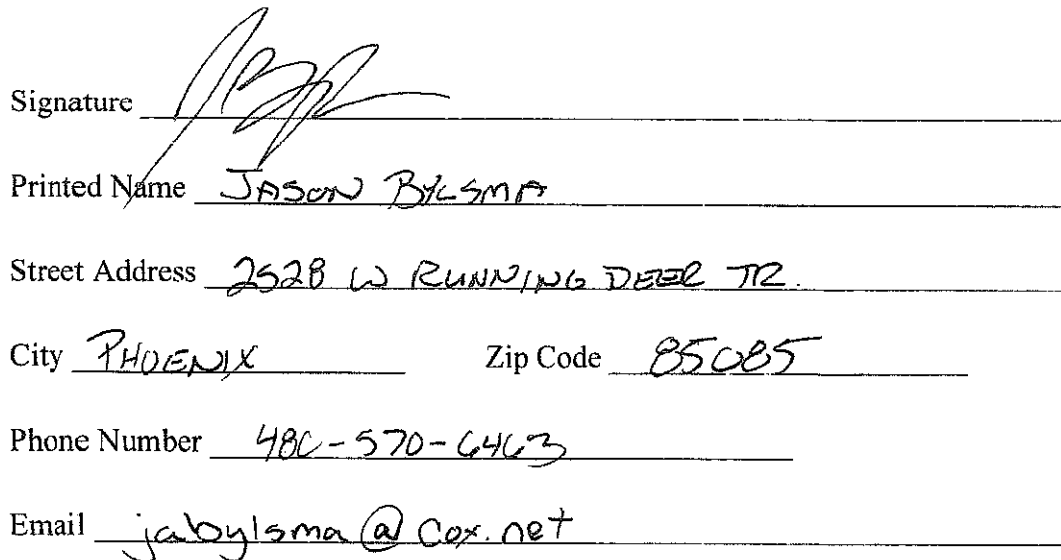 Signature
Printed Name JASON BYLSMA
Street Address 2528 W RUNNING DEER TR.
City PHOENIX Zip Code 85085
Phone Number 480-570-6463
Email jabylsma@cox.net